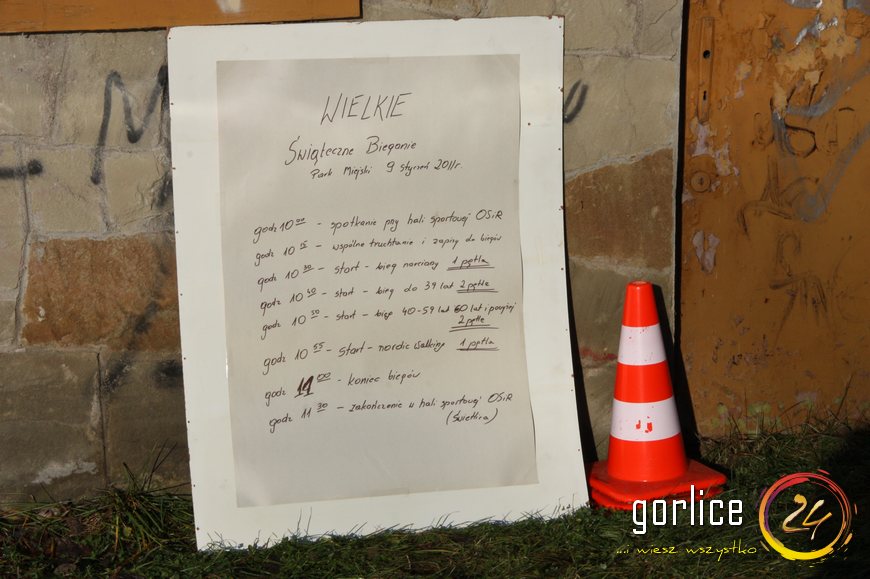 WIELKIE
Świąteczne Bieganie
Park Miejski 9 styczeń 2011r.
godz 10 00 - spotkanie przy hali sportowej OSiR
godz 10 15 - wspólne truchtanie i zapisy do biegów
godz 10 30 - start - bieg narciany 1 pętla
godz 10 40 - start - bieg do 39 lat 2 pętle
godz 10 50 - start - bieg 40-59 lat 60 lat i powyżej
2 pętle
godz 10 55 - start - nordic walking 1 pętla
godz 11 00 - koniec biegów
godz 11 30 - zakończenie w hali sportowej OSiR
(Świetlica)
gorlice 24
...i wiesz wszystko